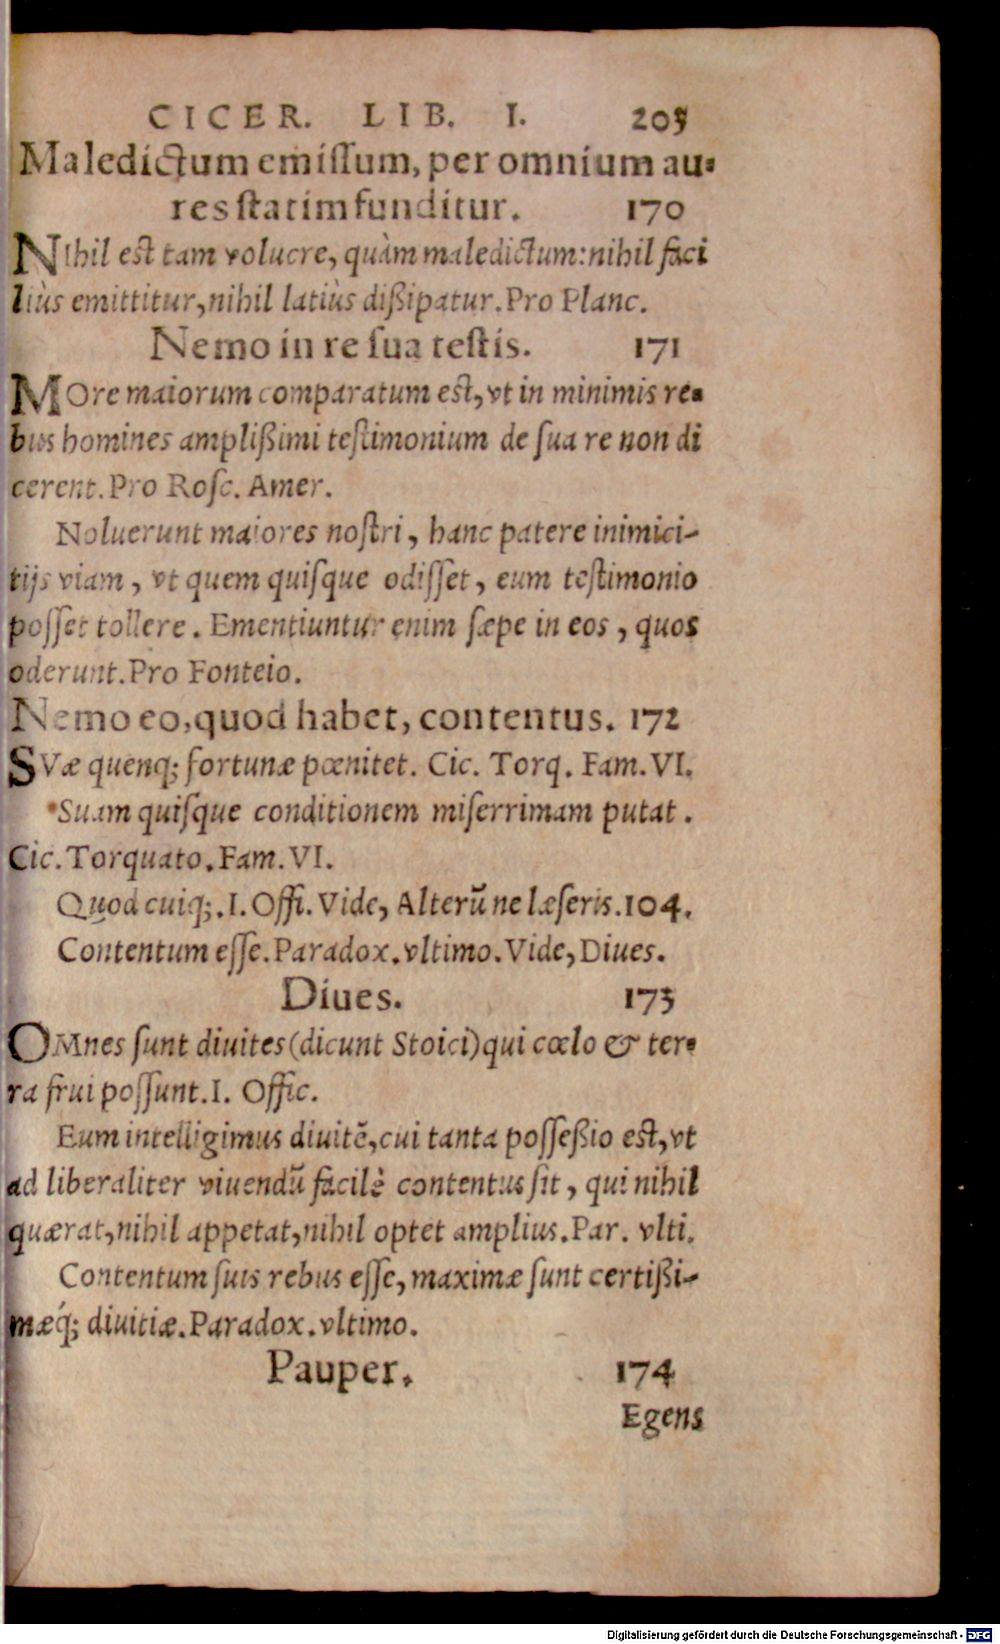 CICER. LIB. I. 205
Maledictum emissum, per omnium au-
res statim funditur. 170
Nihil est tam volucre, quàm maledictum: nihil faci
liùs emittitur, nihil latiùs dißipatur. Pro Planc.
Nemo in re sua testis. 171
MOre maiorum comparatum est, vt in minimis re-
bus homines amplißimi testimonium de sua re non di
cerent. Pro Rosc. Amer.
Noluerunt maiores nostri, hanc patere inimici-
tijs viam, vt quem quisque odisset, eum testimonio
posset tollere. Ementiuntur enim sæpe in eos, quos
oderunt. Pro Fonteio.
Nemo eo, quod habet, contentus. 172
SVæ quenq; fortunæ pœnitet. Cic. Torq. Fam. VI.
Suam quisque conditionem miserrimam putat.
Cic. Torquato. Fam. VI.
Quod cuiq;. I. Offi. Vide, Alterũ ne læseris. 104.
Contentum esse. Paradox. vltimo. Vide, Diues.
Diues. 173
OMnes sunt diuites (dicunt Stoici) qui cœlo & ter-
ra frui possunt. I. Offic.
Eum intelligimus diuitẽ, cui tanta posseßio est, vt
ad liberaliter viuendũ facilè contentus sit, qui nihil
quærat, nihil appetat, nihil optet amplius. Par. vlti.
Contentum suis rebus esse, maximæ sunt certißi-
mæq́; diuitiæ. Paradox. vltimo.
Pauper. 174
Egens
Digitalisierung gefördert durch die Deutsche Forschungsgemeinschaft - DFG